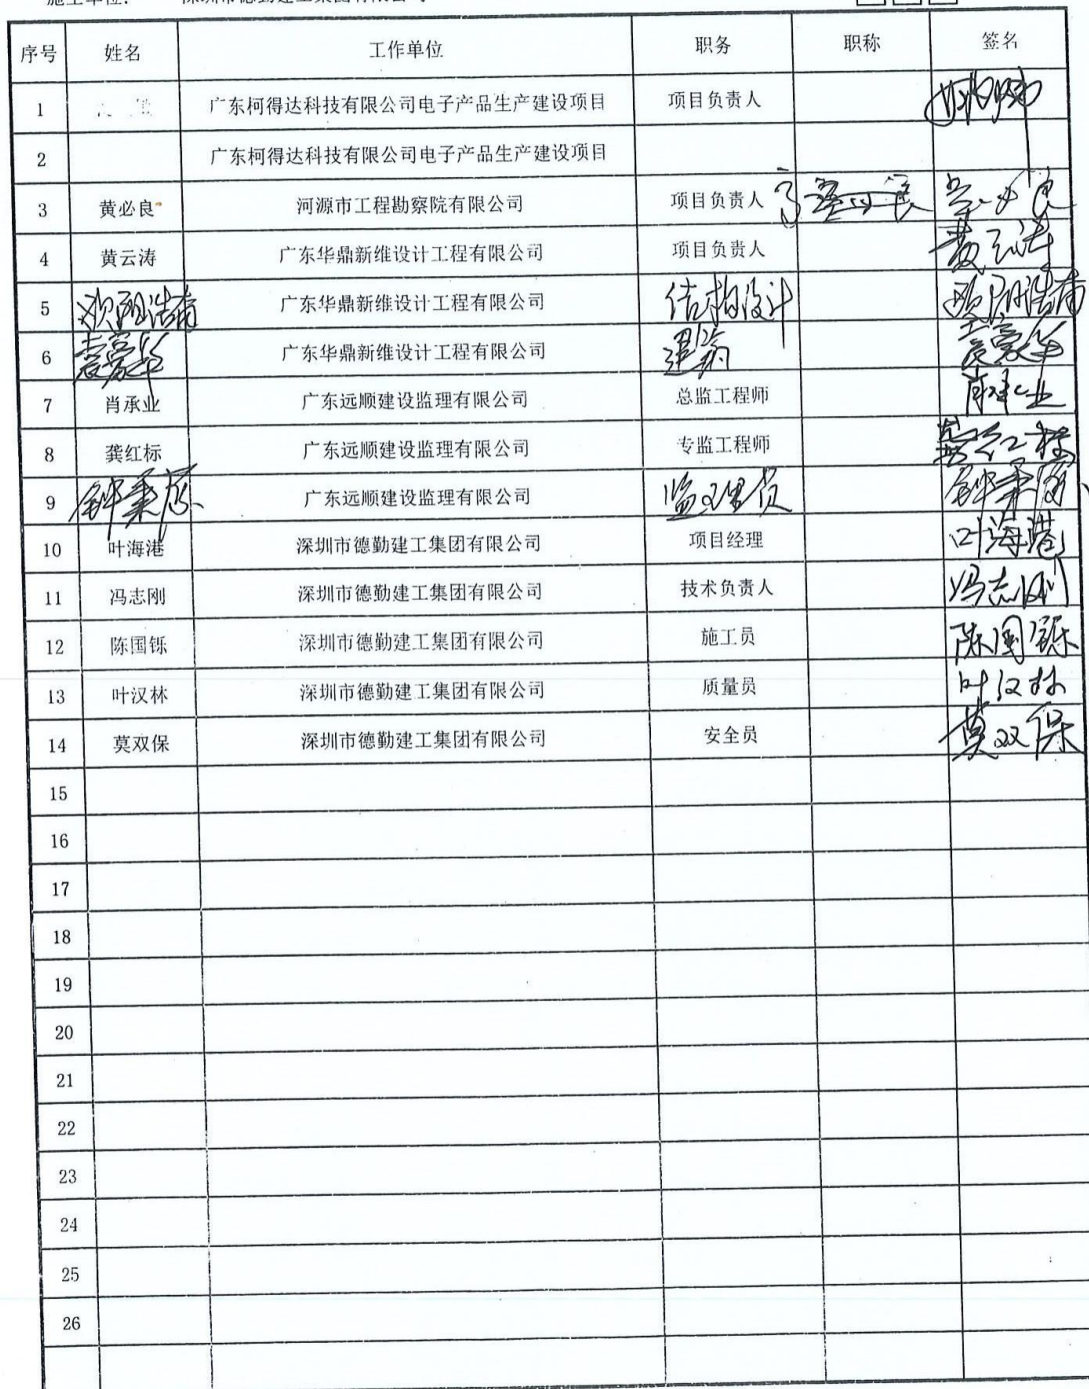 施工单位: 深圳市德勤建工集团有限公司
序号 姓名 工作单位 职务 职称 签名
1 广东柯得达科技有限公司电子产品生产建设项目 项目负责人
2 广东柯得达科技有限公司电子产品生产建设项目
3 黄必良 河源市工程勘察院有限公司 项目负责人
4 黄云涛 广东华鼎新维设计工程有限公司 项目负责人 黄云涛
5 欧阳浩南 广东华鼎新维设计工程有限公司 结构设计 欧阳浩南
6 广东华鼎新维设计工程有限公司 建筑
7 肖承业 广东远顺建设监理有限公司 总监工程师 肖承业
8 龚红标 广东远顺建设监理有限公司 专监工程师 龚红标
9 广东远顺建设监理有限公司 监理员
10 叶海港 深圳市德勤建工集团有限公司 项目经理 叶海港
11 冯志刚 深圳市德勤建工集团有限公司 技术负责人 冯志刚
12 陈国铄 深圳市德勤建工集团有限公司 施工员 陈国铄
13 叶汉林 深圳市德勤建工集团有限公司 质量员 叶汉林
14 莫双保 深圳市德勤建工集团有限公司 安全员 莫双保
15
16
17
18
19
20
21
22
23
24
25
26